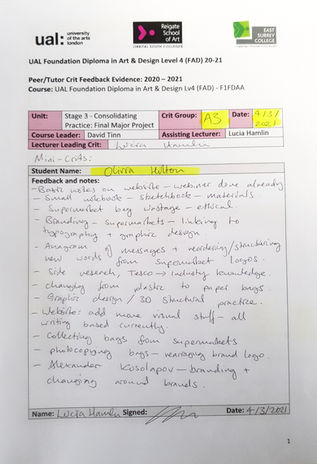 ual: university of the arts london
Reigate School of Art
EAST SURREY COLLEGE
UAL Foundation Diploma in Art & Design Level 4 (FAD) 20-21
Peer/Tutor Crit Feedback Evidence: 2020 – 2021
Course: UAL Foundation Diploma in Art & Design Lv4 (FAD) - F1FDAA
Unit: Stage 3 - Consolidating Practice: Final Major Project Crit Group: A3 Date: 4/3/2021
Course Leader: David Tinn Assisting Lecturer: Lucia Hamlin
Lecturer Leading Crit: Lucia Hamlin
Mini-Crits:
Student Name: Olivia Hilton
Feedback and notes:
- Basic notes on website – webinar done already
- Small notebook – sketchbook – materials
- Supermarket bag wastage – ethical
- Branding – supermarkets – linking to
typography + graphic design
- Anagram of messages + reordering/structuring
new words from supermarket logos.
- Site research, Tesco → industry knowledge.
- changing from plastic to paper bags.
- Graphic design / 3D structural practice.
- Website: add more visual stuff – all
writing based currently.
- Collecting bags from supermarkets
- photocopying bags – rearranging brand logo.
- Alexander Kosolapov – branding +
changing around brands.
Name: Lucia Hamlin Signed: Date: 4/3/2021
1